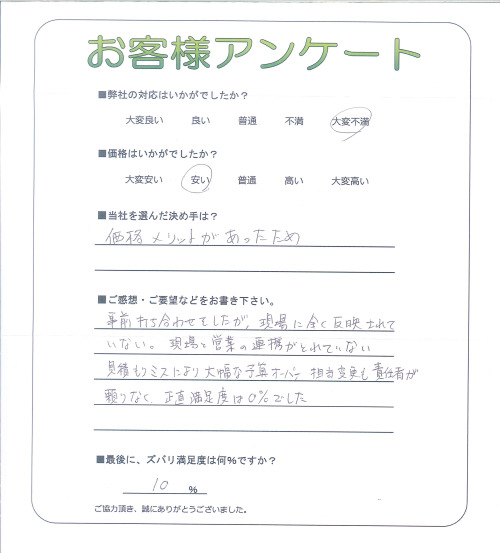 お客様アンケート
■弊社の対応はいかがでしたか？
大変良い 良い 普通 不満 大変不満
■価格はいかがでしたか？
大変安い 安い 普通 高い 大変高い
■当社を選んだ決め手は？
価格メリットがあったため
■ご感想・ご要望などをお書き下さい。
事前打ち合わせをしたが、現場に全く反映されて
いない。現場と営業の連携がとれていない
見積もりミスにより大幅な予算オーバー 担当変更も責任者が
頼りなく、正直満足度は0％でした
■最後に、ズバリ満足度は何％ですか？
10 %
ご協力頂き、誠にありがとうございました。